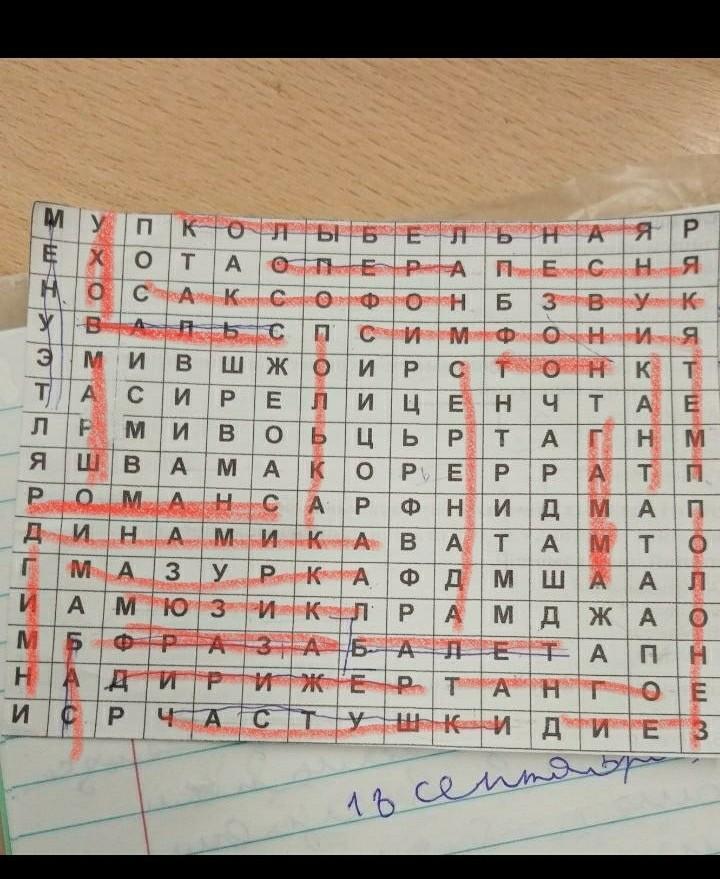 М У П К О Л Ы Б Е Л Ь Н А Я Р
Е Х О Т А О П Е Р А П Е С Н Я
Н О С А К С О Ф О Н Б З В У К
У В А Л Ь С П С И М Ф О Н И Я
Э М И В Ш Ж О И Р С Т О Н К Т
Т А С И Р Е Л И Ц Е Н Ч Т А Е
Л Р М И В О Ь Ц Ь Р Т А Г Н М
Я Ш В А М А К О Р Е Р Р А Т П
Р О М А Н С А Р Ф Н И Д М А П
Д И Н А М И К А В А Т А М Т О
Г М А З У Р К А Ф Д М Ш А А Л
И А М Ю З И К Л Р А М Д Ж А О
М Б Ф Р А З А Б А Л Е Т А П Н
Н А Д И Р И Ж Е Р Т А Н Г О Е
И С Р Ч А С Т У Ш К И Д И Е З
18 сентября.